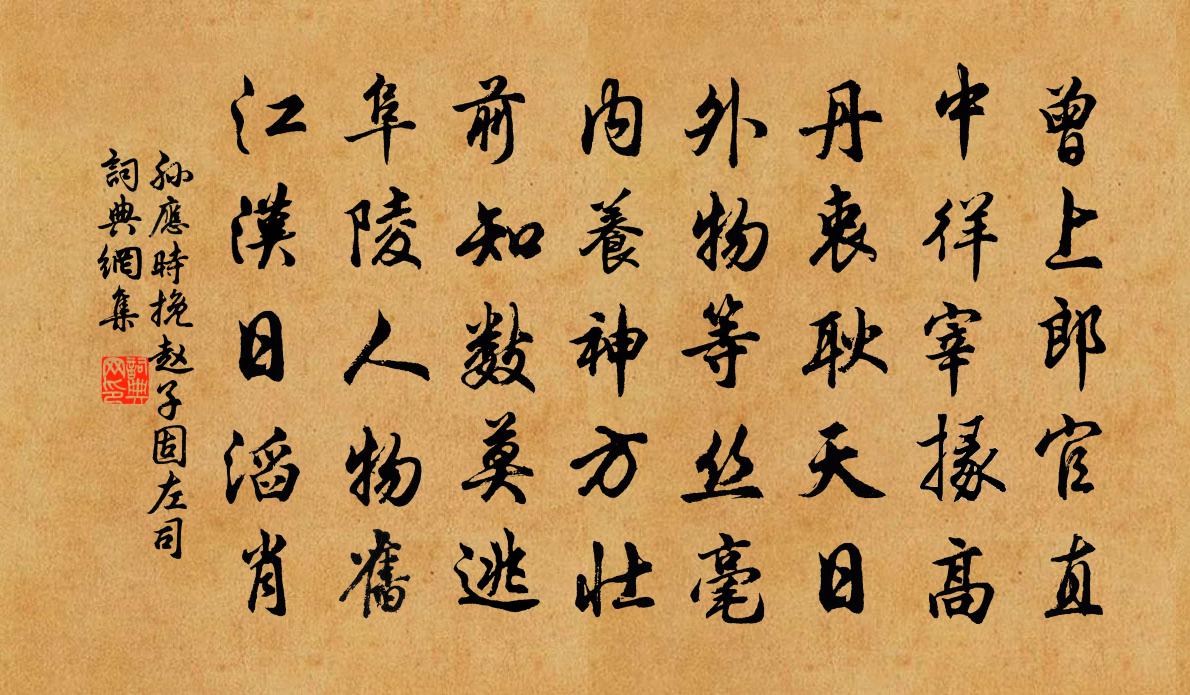 曾上郎官直
中徉宰掾高
丹衷耿天日
外物等丝毫
内養神方壮
前知数莫逃
阜陵人物舊
江漢日滔肖
孙應時挽赵子固左司
詞典網集
詞典网印